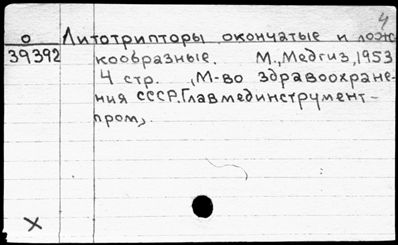 4
о Литотрипторы окончатые и лож
39392 кообразные. М., Медгиз, 1953
4 стр. (М-во здравоохране-
ния СССР. Главмединструмент-
пром).
X